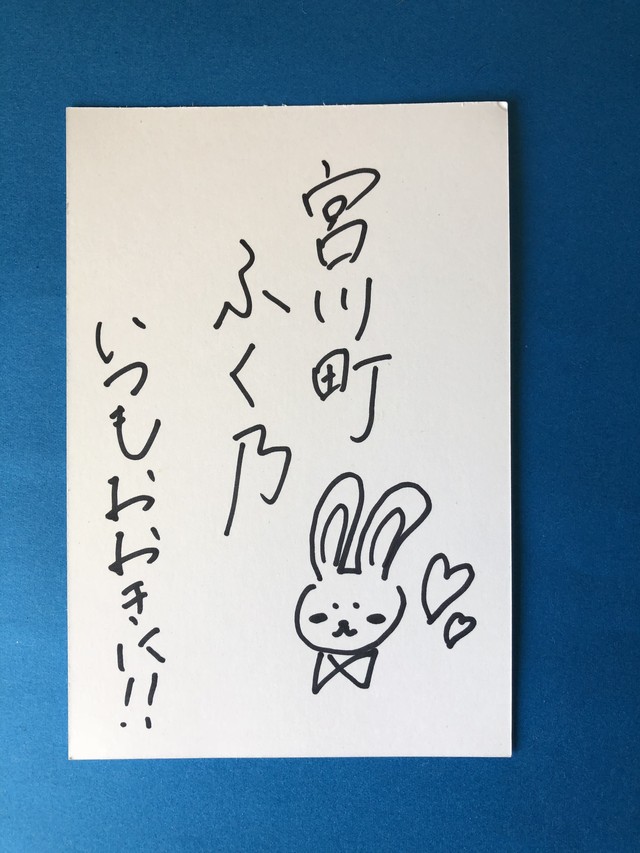 宮川町
ふく乃
いつもおおきに!!